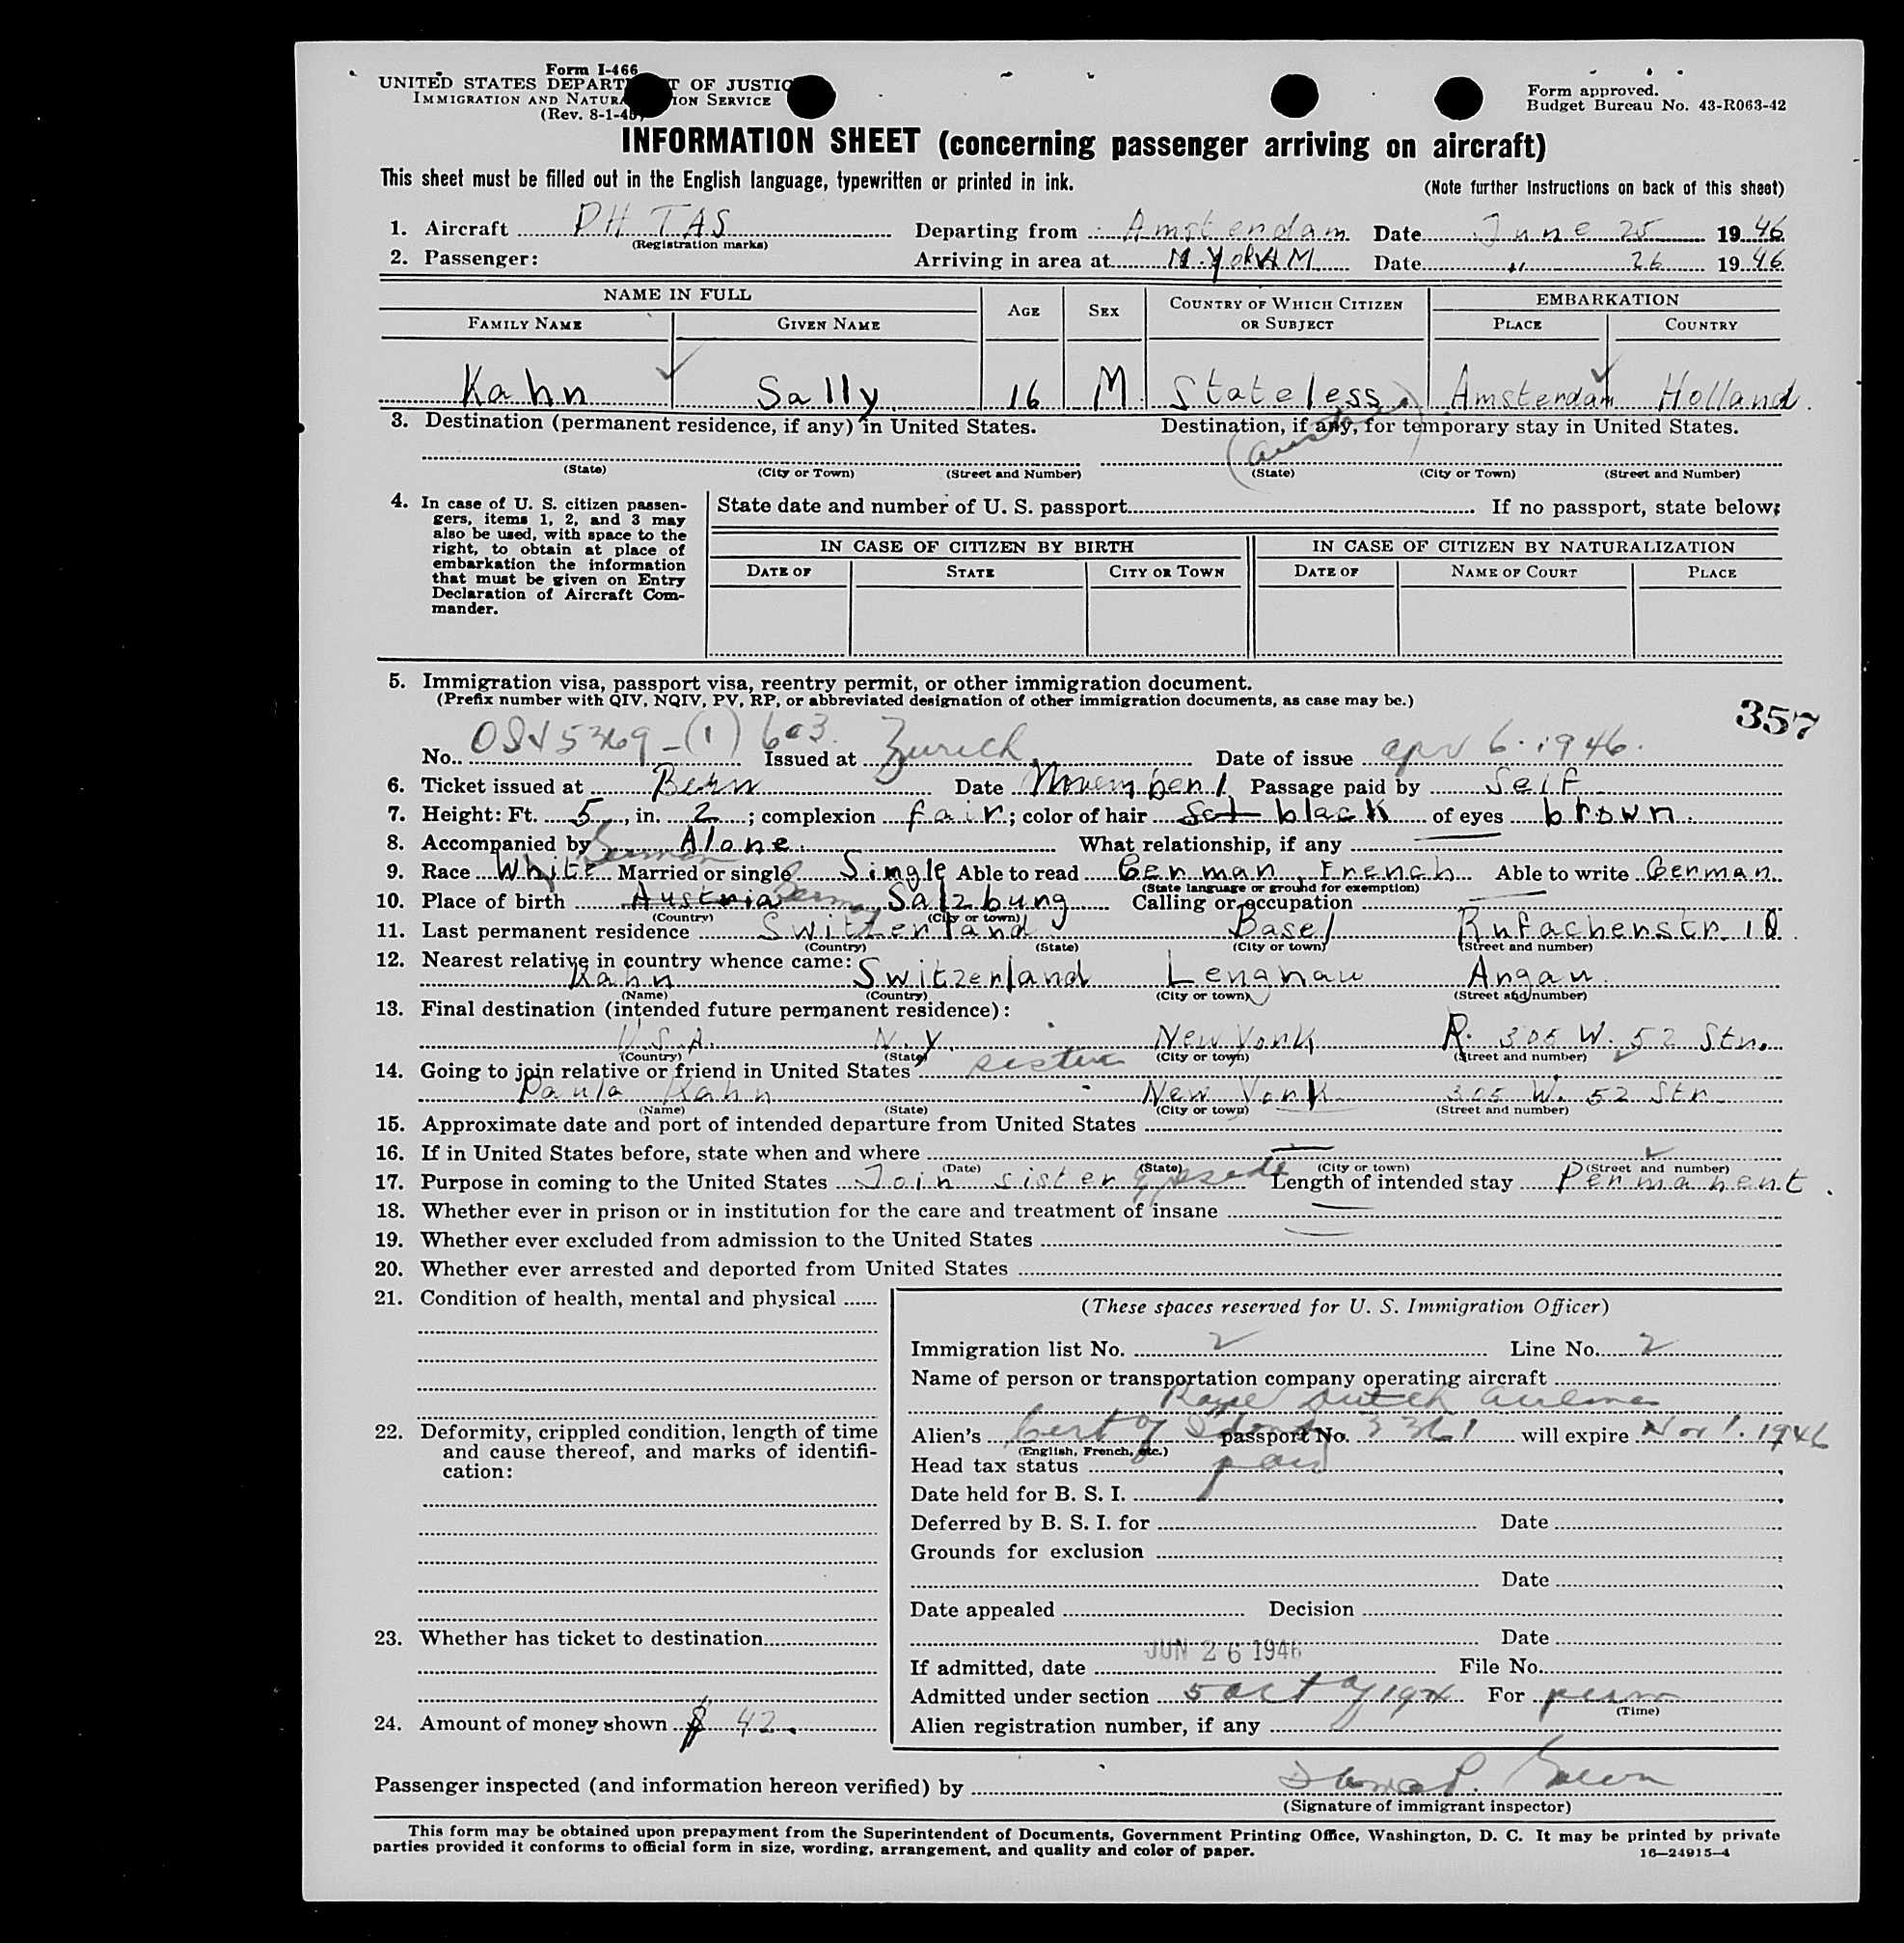 Form I-466
UNITED STATES DEPART T OF JUSTIC
IMMIGRATION AND NATURA ION SERVICE
(Rev. 8-1-45)
Form approved.
Budget Bureau No. 43-R063-42
INFORMATION SHEET (concerning passenger arriving on aircraft)
This sheet must be filled out in the English language, typewritten or printed in ink.
(Note further instructions on back of this sheet)
1. Aircraft PH TAS Departing from Amsterdam Date June 25 1946
(Registration marks)
2. Passenger: Arriving in area at N. York Date " 26 1946
NAME IN FULL AGE SEX COUNTRY OF WHICH CITIZEN OR SUBJECT EMBARKATION
FAMILY NAME GIVEN NAME PLACE COUNTRY
Kahn Sally 16 M Stateless Amsterdam Holland.
3. Destination (permanent residence, if any) in United States. Destination, if any, for temporary stay in United States.
(State) (City or Town) (Street and Number) (State) (City or Town) (Street and Number)
4. In case of U. S. citizen passengers, items 1, 2, and 3 may also be used, with space to the right, to obtain at place of embarkation the information that must be given on Entry Declaration of Aircraft Commander.
State date and number of U. S. passport If no passport, state below:
IN CASE OF CITIZEN BY BIRTH IN CASE OF CITIZEN BY NATURALIZATION
DATE OF STATE CITY OR TOWN DATE OF NAME OF COURT PLACE
5. Immigration visa, passport visa, reentry permit, or other immigration document.
(Prefix number with QIV, NQIV, PV, RP, or abbreviated designation of other immigration documents, as case may be.)
357
No. 603 Issued at Zurich Date of issue apr 6. 1946.
6. Ticket issued at Bern Date November 1 Passage paid by Self
7. Height: Ft. 5, in. 2; complexion fair; color of hair black of eyes brown.
8. Accompanied by Alone. What relationship, if any
German
9. Race White Married or single Single Able to read German, French Able to write German
(State language or ground for exemption)
10. Place of birth Austria Germany Salzburg Calling or occupation
(Country) (City or town)
11. Last permanent residence Switzerland Basel Rufacherstr. 10.
(Country) (State) (City or town) (Street and number)
12. Nearest relative in country whence came:
Kahn Switzerland Lengnau Argau.
(Name) (Country) (City or town) (Street and number)
13. Final destination (intended future permanent residence):
U.S.A. N.Y. New York 305 W. 52 Str.
(Country) (State) (City or town) (Street and number)
14. Going to join relative or friend in United States sister
Paula Kahn New York 305 W. 52 Str.
(Name) (State) (City or town) (Street and number)
15. Approximate date and port of intended departure from United States
16. If in United States before, state when and where
(Date) (State) (City or town) (Street and number)
17. Purpose in coming to the United States Join sister & reside Length of intended stay Permanent.
18. Whether ever in prison or in institution for the care and treatment of insane
19. Whether ever excluded from admission to the United States
20. Whether ever arrested and deported from United States
21. Condition of health, mental and physical
22. Deformity, crippled condition, length of time and cause thereof, and marks of identification:
23. Whether has ticket to destination
24. Amount of money shown $ 42.
(These spaces reserved for U. S. Immigration Officer)
Immigration list No. 2 Line No. 2
Name of person or transportation company operating aircraft
Royal Dutch Airlines
Alien's Cert of Ident passport No. 3361 will expire Nov 1. 1946
(English, French, etc.)
Head tax status paid
Date held for B. S. I.
Deferred by B. S. I. for Date
Grounds for exclusion
Date
Date appealed Decision
Date
JUN 26 1946
If admitted, date File No.
Admitted under section 5 act of 1924 For perm
(Time)
Alien registration number, if any
Passenger inspected (and information hereon verified) by
(Signature of immigrant inspector)
This form may be obtained upon prepayment from the Superintendent of Documents, Government Printing Office, Washington, D. C. It may be printed by private
parties provided it conforms to official form in size, wording, arrangement, and quality and color of paper.
16—24915-4